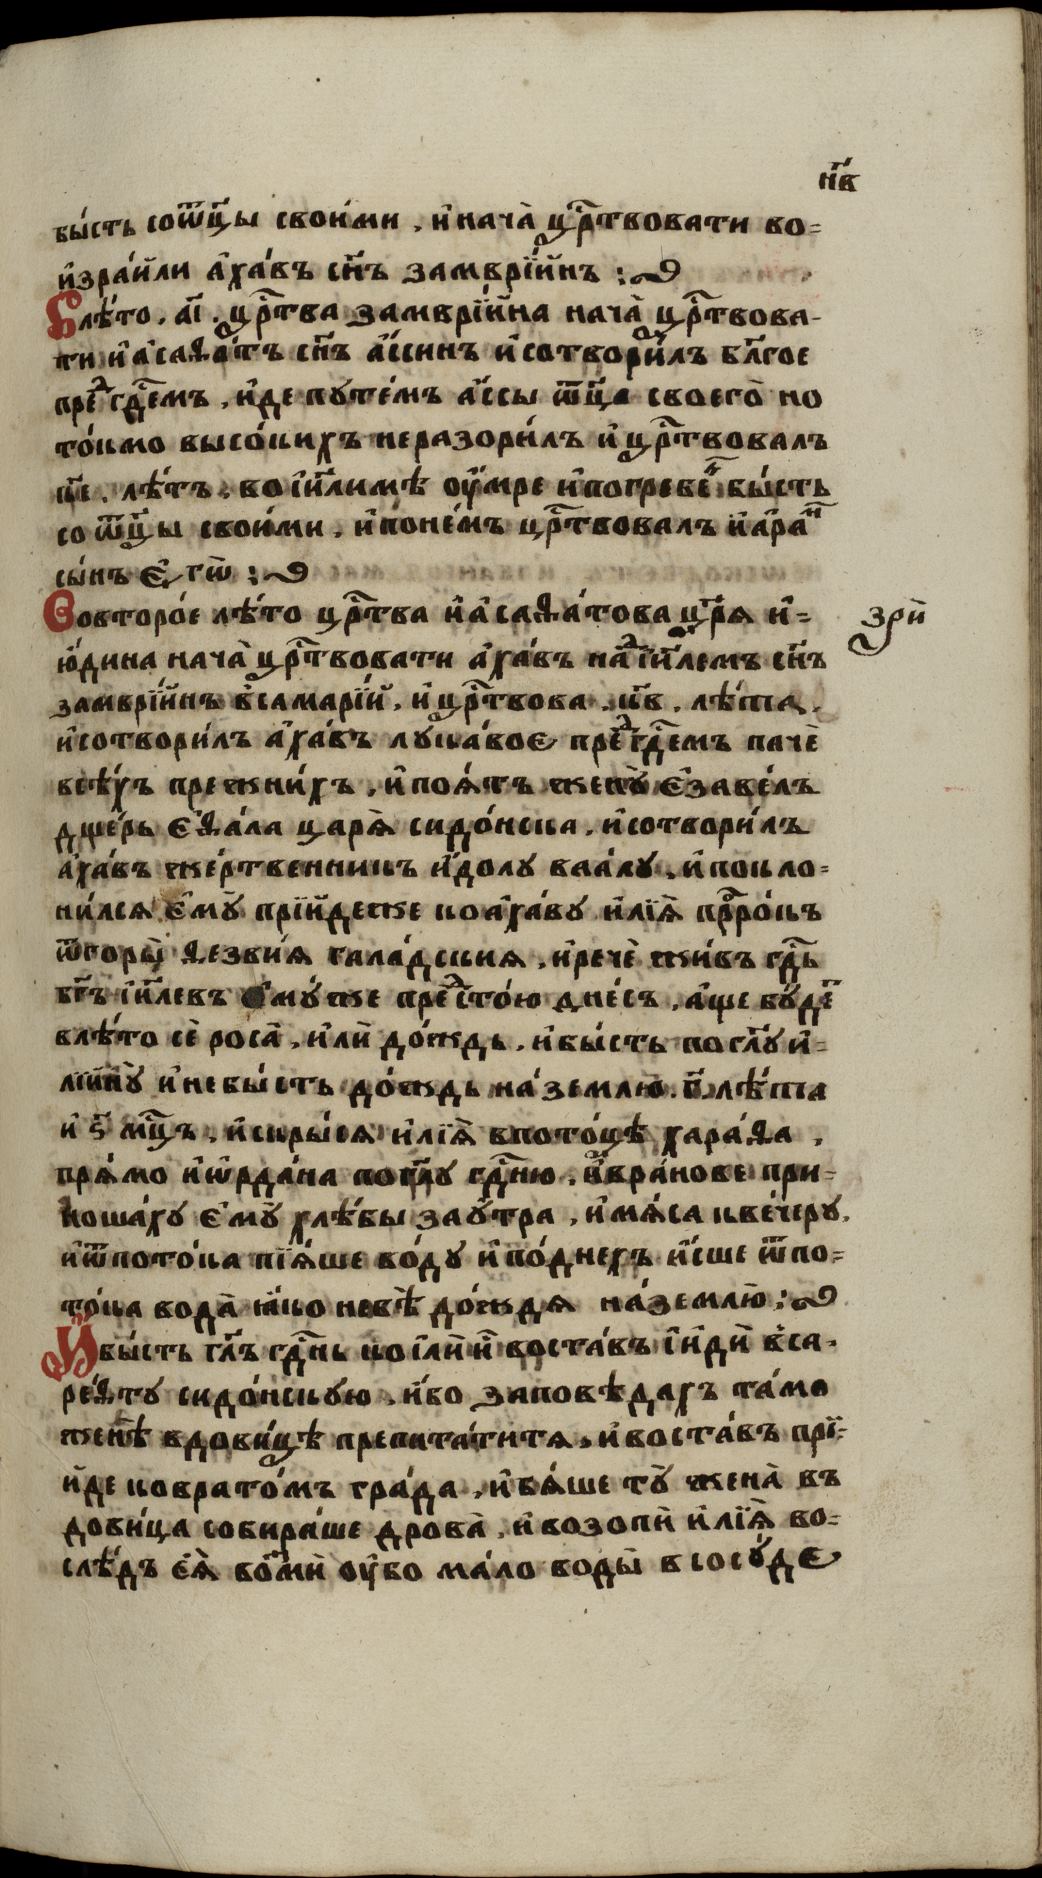 н҃в
бы́сть соѿц҃ы свои́ми , и҆нача̀ цр҃твовати во-
и҆зра́и҆ли а҆ха́въ сн҃ъ замврі́инъ :
Влѣ́то . а҃і . цр҃тва замврі́ина нача̀ цр҃твова-
ти и҆а҆саѳа́тъ сн҃ъ а҆́ссинъ и҆сотвори́лъ бл҃гое
преⷣгдⷭ҇емъ , и҆́де путе́мъ а҆́ссы ѿц҃а своегѡ̀ но
то́кмо высо́кихъ неразори́лъ и҆цр҃твовалъ
к҃е . лѣ́тъ . воі҆и҃лимѣ оу҆́мре и҆погребе́ⁿ бы́сть
соѿц҃ы свои́ми , и҆поне́мъ цр҃твовалъ и҆а҆ра́ⷨ
сы́нъ є҆гѡ̀ :
Вовторо́е лѣ́то цр҃тва и҆а҆саѳа́това цр҃я и҆-
ю҆́дина нача̀ цр҃твовати а҆ха́въ наⷣі҆и҃лемъ сн҃ъ
замврі́инъ в҆самарі́й , и҆цр҃твова . к҃в . лѣ́та ,
и҆сотвори́лъ а҆ха́въ лука́воє преⷣгдⷭ҇емъ пачѐ
всѣ́хъ пре́жнихъ , и҆поѧ́тъ жену̀ є҆заве́лъ
дще́рь є҆ѳа́ла царѧ̀ сидо́нска , и҆сотвори́лъ
а҆ха́въ же́ртвенникъ и҆́долу ваа́лу , и҆покло-
ни́лсѧ є҆му̀ прїи́деже коа҆ха́ву и҆лїѧ̀ прⷪ҇ро́къ
ѿгоры̀ ѳезви́ѧ гала́дскиѧ , и҆речѐ жи́въ гдⷭ҇ь
бг҃ъ і҆и҃левъ є҆му́же преⷣсто́ю дне́сь , а҆́ще бу́деⷮ
влѣ́то сѐ роса̀ , и҆лѝ до́ждь , и҆бы́сть погл҃у и҆-
лїину̀ и҆небы́сть до́ждь на́землю . г҃ . лѣ́та
и҆ ѕ҃ мц҃ъ , и҆скры́сѧ и҆лїѧ̀ впото́цѣ хара́ѳа ,
прѧ́мо и҆ѡ҆рда́на погл҃у гдⷭ҇ню , и҆вра́нове при-
ноша́ху є҆му̀ хлѣ́бы зау́тра , и҆мѧ́са квечеру ,
и҆ѿпото́ка пїѧ́ше во́ду и҆по́днехъ и҆́сше ѿпо-
то́ка вода̀ ꙗ҆́ко небѣ̀ до́ждѧ на́землю :
И҆бы́сть гл҃ъ гдⷭ҇нь коі҆лїѝ воста́въ і҆идѝ в҆са-
ре́ѳту сидо́нскую , и҆́бо заповѣ́дахъ та́мо
женѣ̀ вдови́цѣ препита́титѧ , и҆воста́въ прї-
и́де ковратѡ́мъ гра́да , и҆бѧ́ше ту̀ жена̀ въ
дови́ца собира́ше дрова̀ , и҆возопѝ и҆лїѧ̀ во-
слѣ́дъ є҆ѧ̀ возмѝ оу҆́бо ма́ло воды̀ в сосу́дє
зрѝ